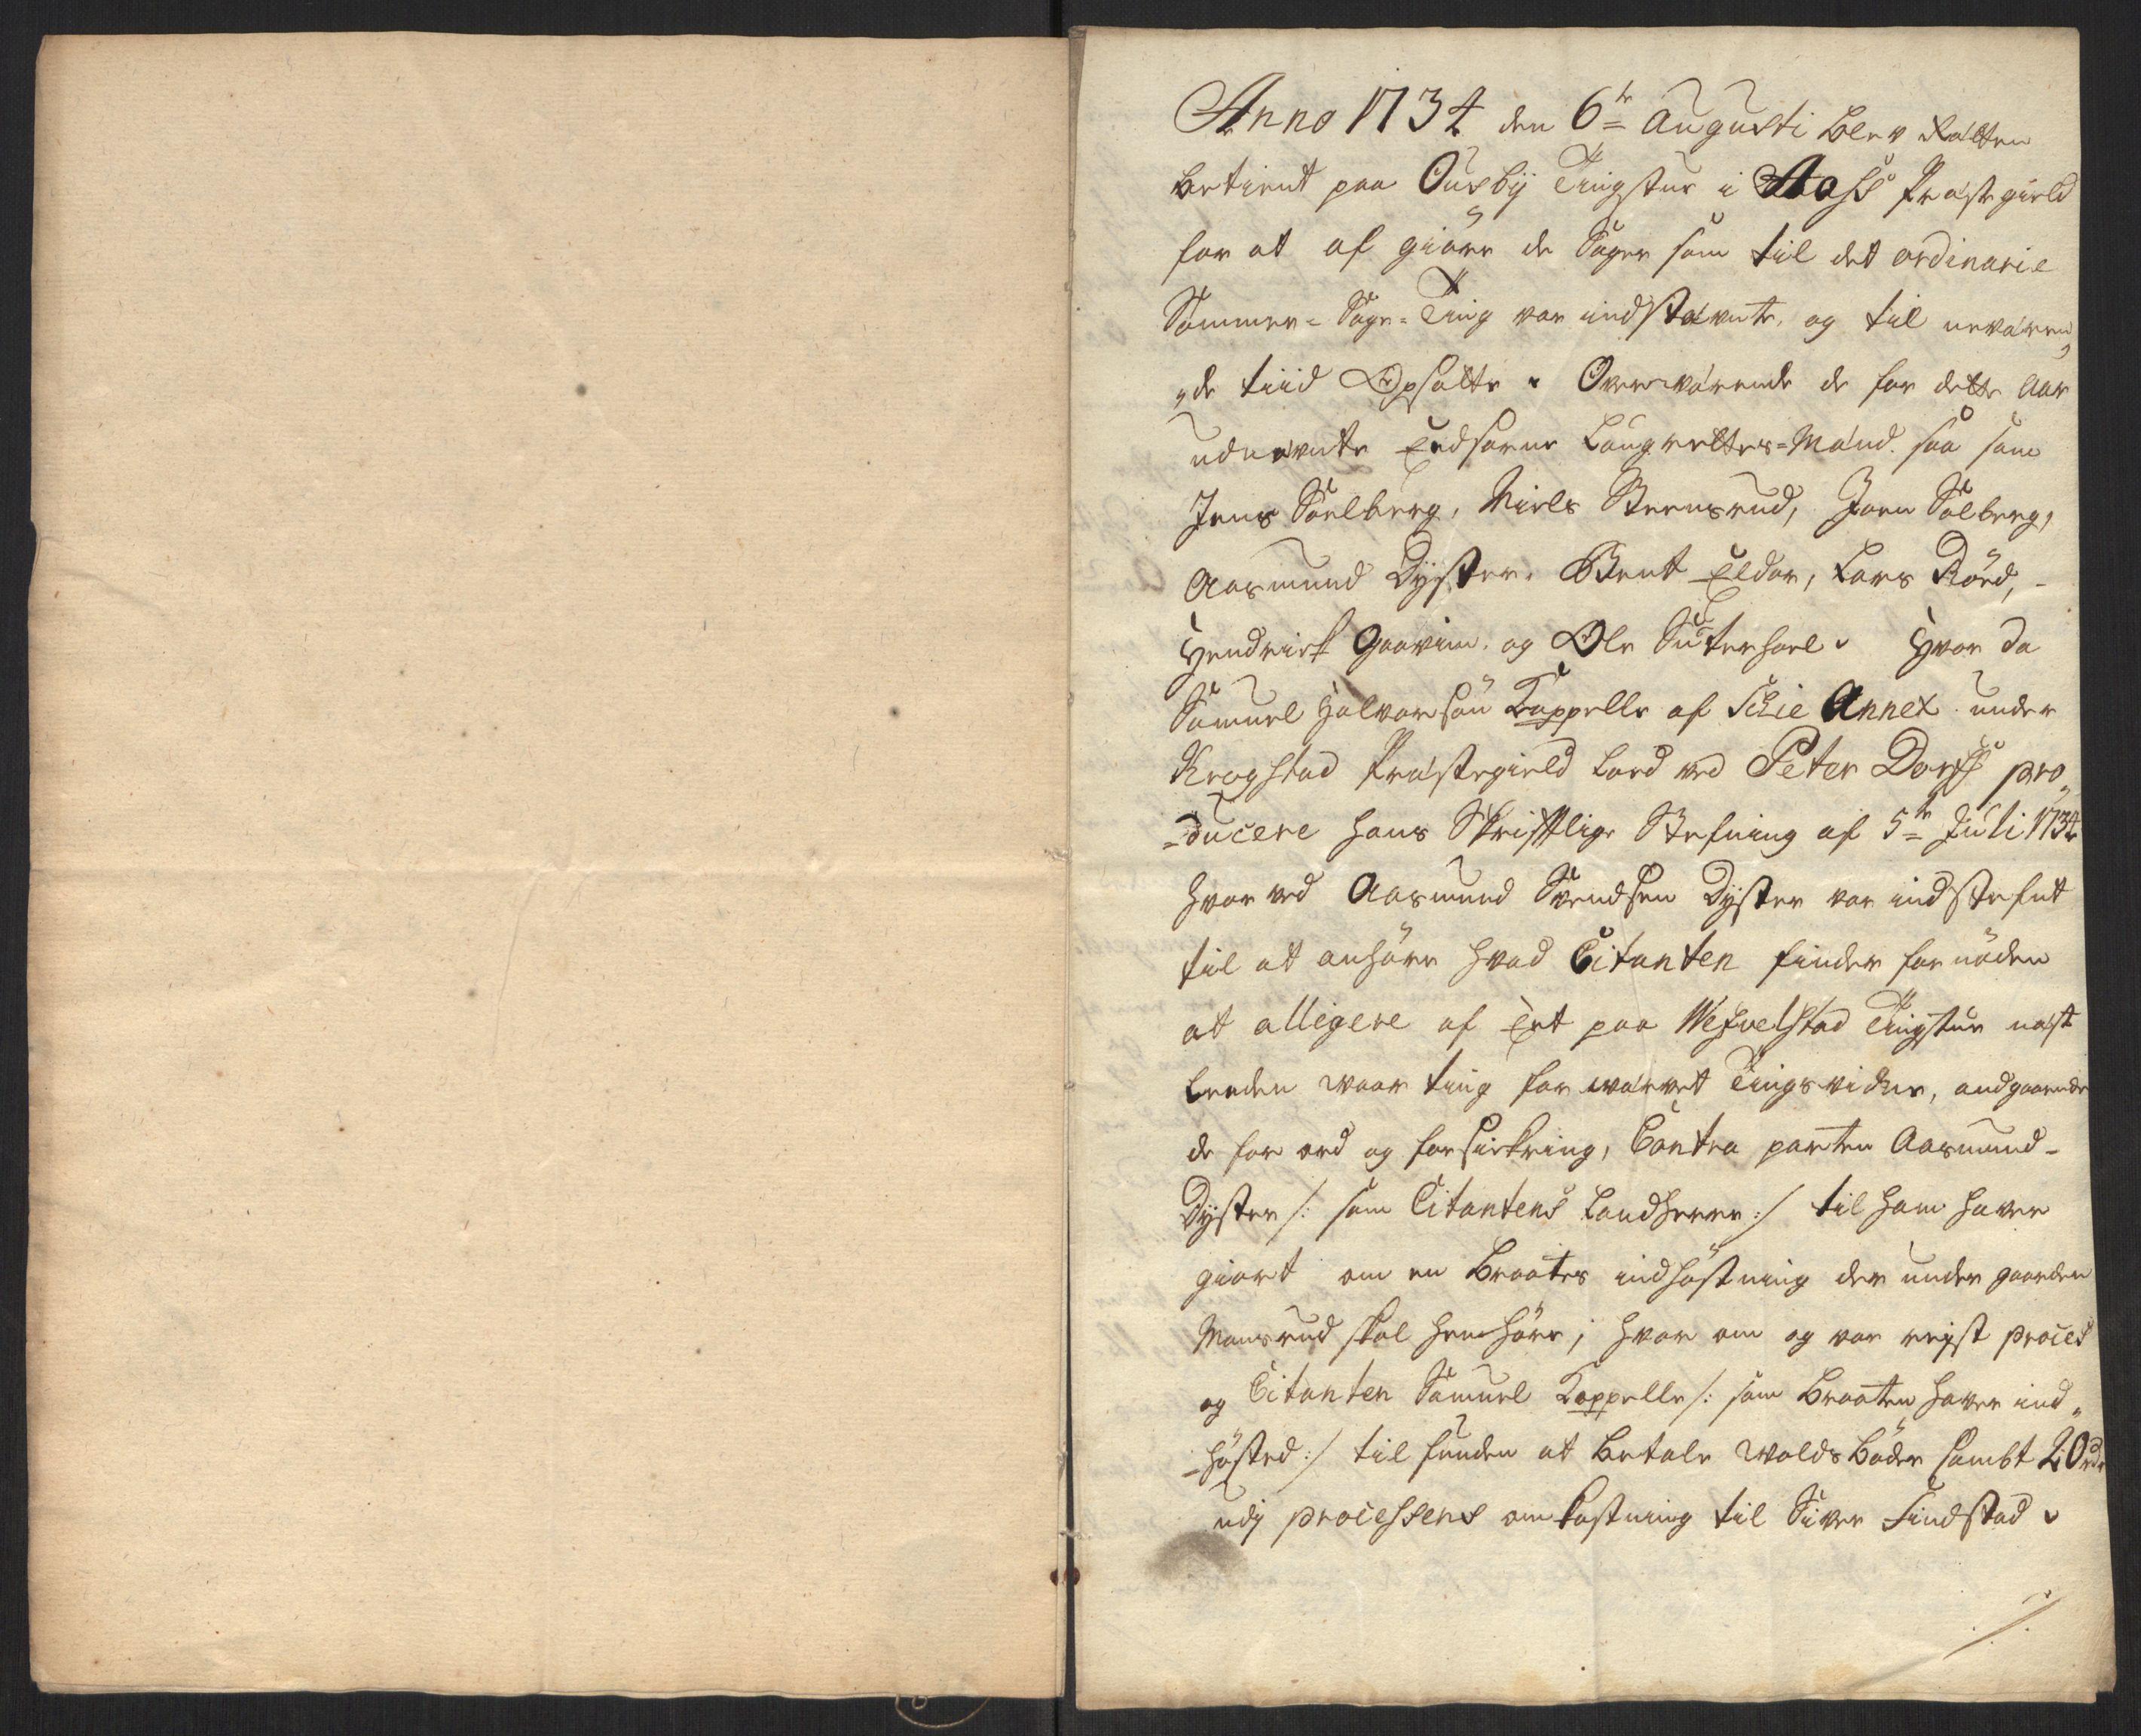 Anno 1734 den 6te Augusti blev Rætten
betient paa Ousbÿ Tingstue i Aass Præstegield
for at af giöre de Sager som til det ordinarie
Sommer- Sage- Ting var indstævnte, og til neværen„
„de tiid Opsatte. Overværende de for dette Aar
udnævnte Eedsorne Laugrettes-Mænd. saa som
Jens Soelberg, Niels Steensrud, Joen Solberg,
Aasmund Dÿster. Bent Eldor, Lars Röed,
Hendrick Gaarim. og Ole Sneterhoel. Hvor da
Samuel Halvorsön Kappelle af Schie Annex under
Krogstad Præstegield lod ved Peter Dorff pro„
-ducere hans Skrifftlige Stefning af 5te Juli 1734
hvor ved Aasmund Svendsen Dÿster var indstefnt
til at anhöre hvad Citanten finder fornöden
at alligere af Eet paa Wefvelstad Tingstue næst
leeden waar ting for wærvet Tingsvidne, andgaaende
de for ord og forsickring, Contra parten Aasmund-
Dÿster /: som Citantens Landherre :/ til ham haver
giort om en Braates indhöstning der under gaarden
Mansrud skal henhöre; hvor om og var reijst proces
og Citanten Samuel Kappelle /: som Braaten haver ind„
-hösted :/ til funden at betale Wolds Böder sambt 20 rdr
udj processens omkostning til Siver Findstad.
./.